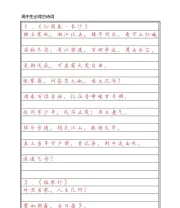 高中生必背古诗词
1、《沁园春·长沙》
独立寒秋，湘江北去，橘子洲头。看万山红遍，
层林尽染；漫江碧透，百舸争流。鹰击长空，
鱼翔浅底，万类霜天竞自由。
怅寥廓，问苍茫大地，谁主沉浮？
携来百侣曾游，忆往昔峥嵘岁月稠。
恰同学少年，风华正茂；书生意气，
挥斥方遒。指点江山，激扬文字，
粪土当年万户侯。曾记否，到中流击水，
浪遏飞舟？
2、《短歌行》
对酒当歌，人生几何！
譬如朝露，去日苦多。